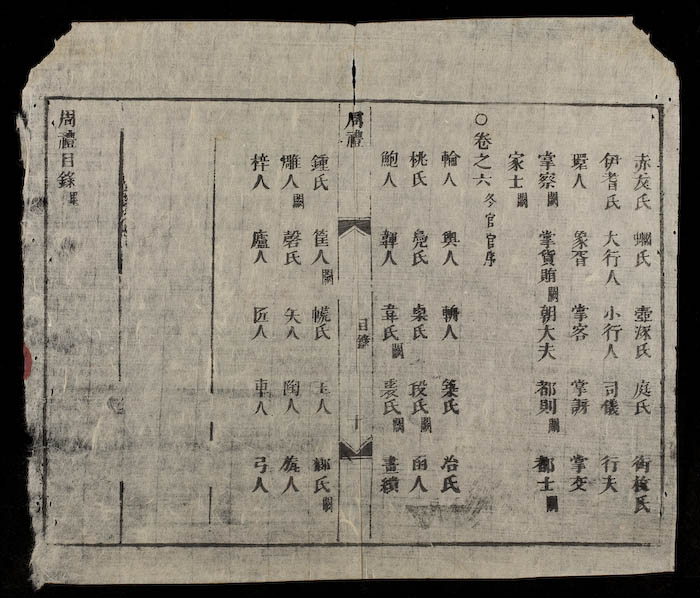 赤犮氏 蟈氏 壺涿氏 庭氏 銜枚氏
伊耆氏 大行人 小行人 司儀 行夫
環人 象胥 掌客 掌訝 掌交
掌察闕 掌貨賄闕 朝大夫 都則闕 都士闕
家士闕
○卷之六 冬官官序
輪人 輿人 輈人 築氏 冶氏
桃氏 鳧氏 㮚氏 段氏闕 函人
鮑人 韗人 韋氏闕 裘氏闕 畫繢
周禮 目錄 十
鍾氏 筐人闕 㡛氏 玉人 楖氏闕
雕人闕 磬氏 矢人 陶人 瓬人
梓人 廬人 匠人 車人 弓人
周禮目錄畢